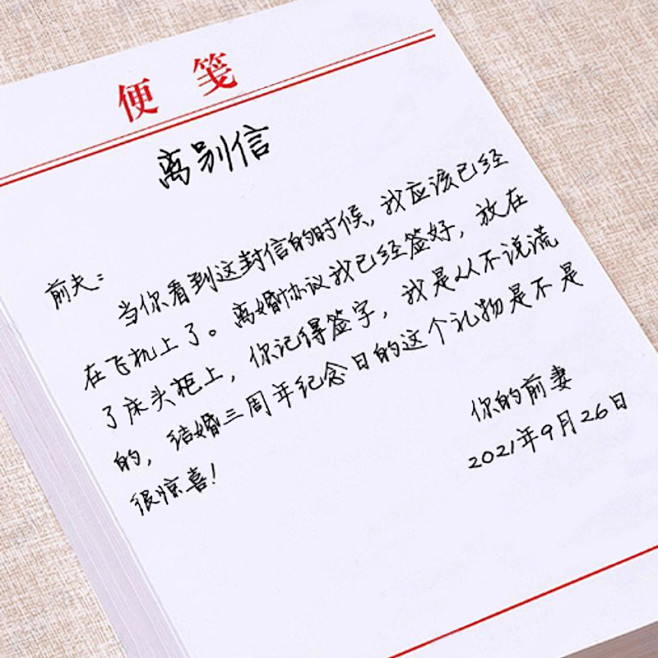 便笺
离别信
前夫：
当你看到这封信的时候，我应该已经
在飞机上了。离婚协议我已经签好，放在
了床头柜上，你记得签字，我是从不说谎
的，结婚三周年纪念日的这个礼物是不是
很惊喜！
你的前妻
2021年9月26日